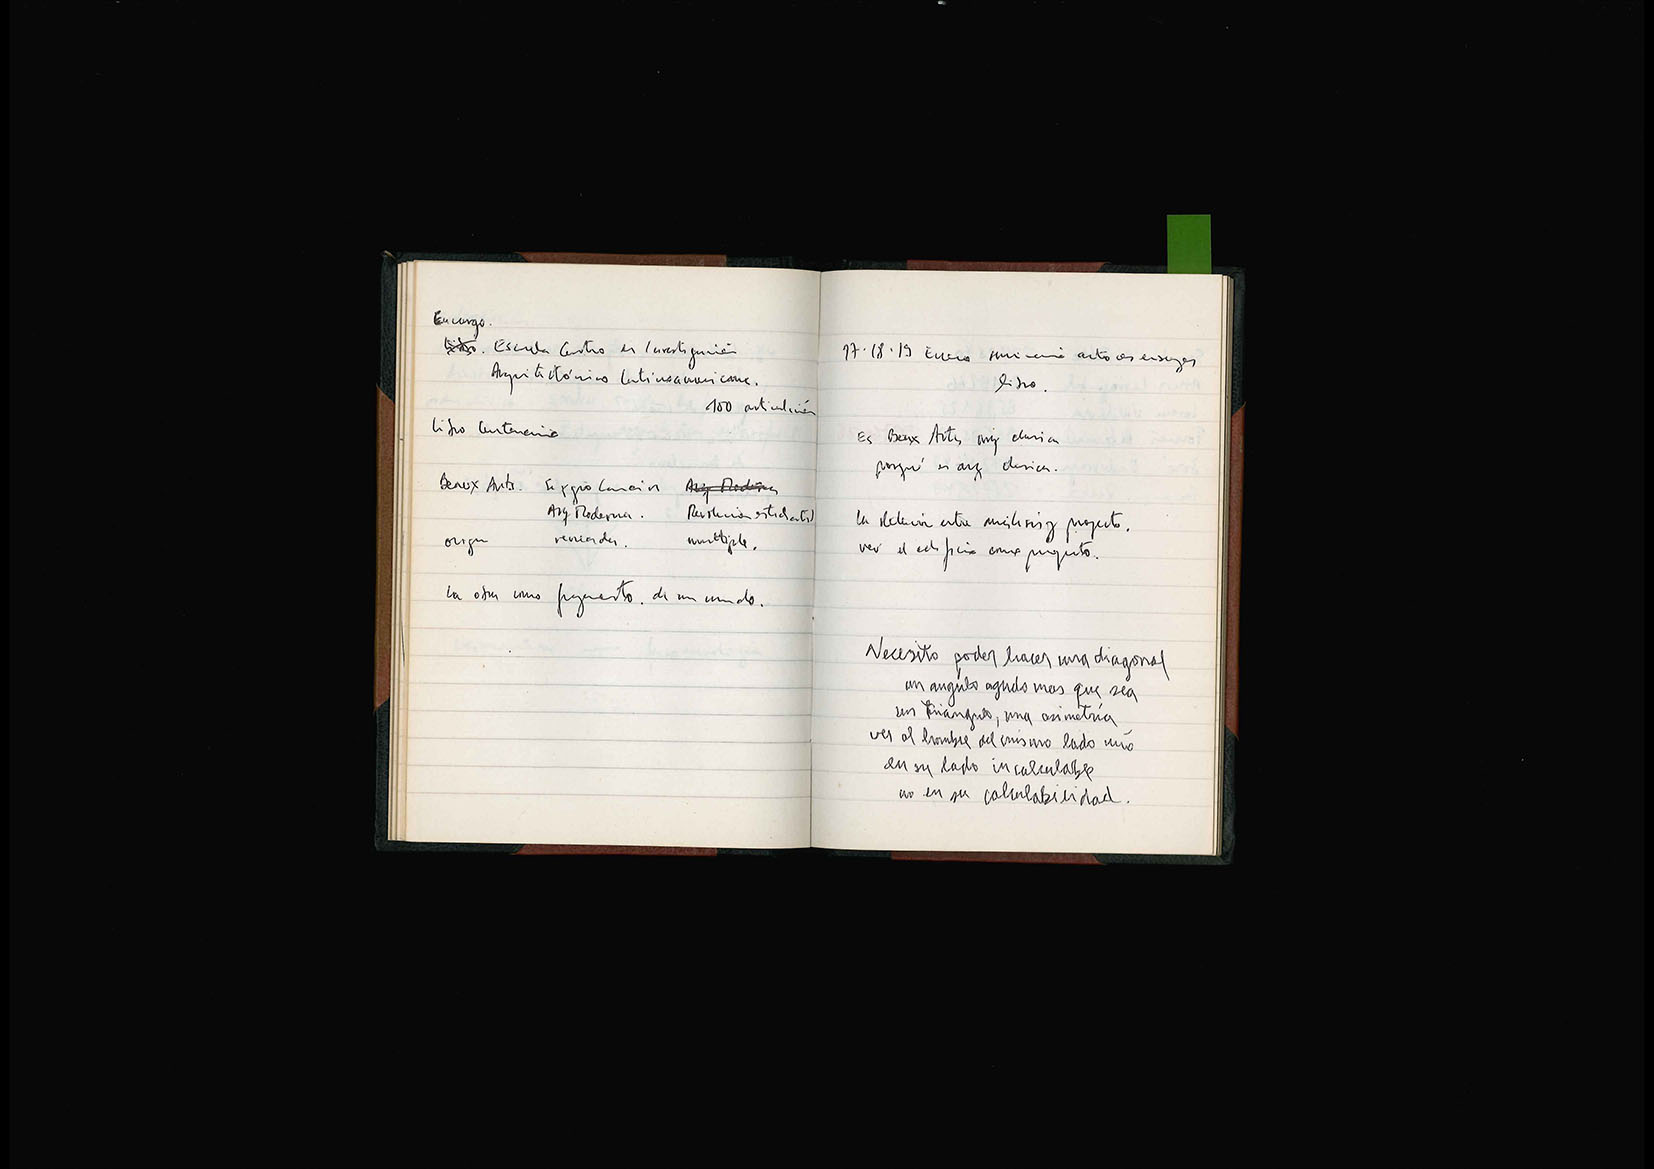 Encargo.
Libro. Escuela Centro en Investigación
Arquitectónico Latinoamericano.
100 articulación
Libro Centenario
Beaux Arts. Sergio Larraín Arq Moderna
Arq Moderna. Revolución estudiantil
origen múltiple.
La obra como fragmento. de un mundo.
17.18.19 Enero
libro.
Es Beaux Arts arq clasica
porqué es arq clasica.
La relación entre y proyecto.
ver el edificio como proyecto.
Necesito poder hacer una diagonal
un angulo agudo mas que sea
un triangulo, una asimetría
ver al hombre del mismo lado mío
en su lado incalculable
no en su calculabilidad.